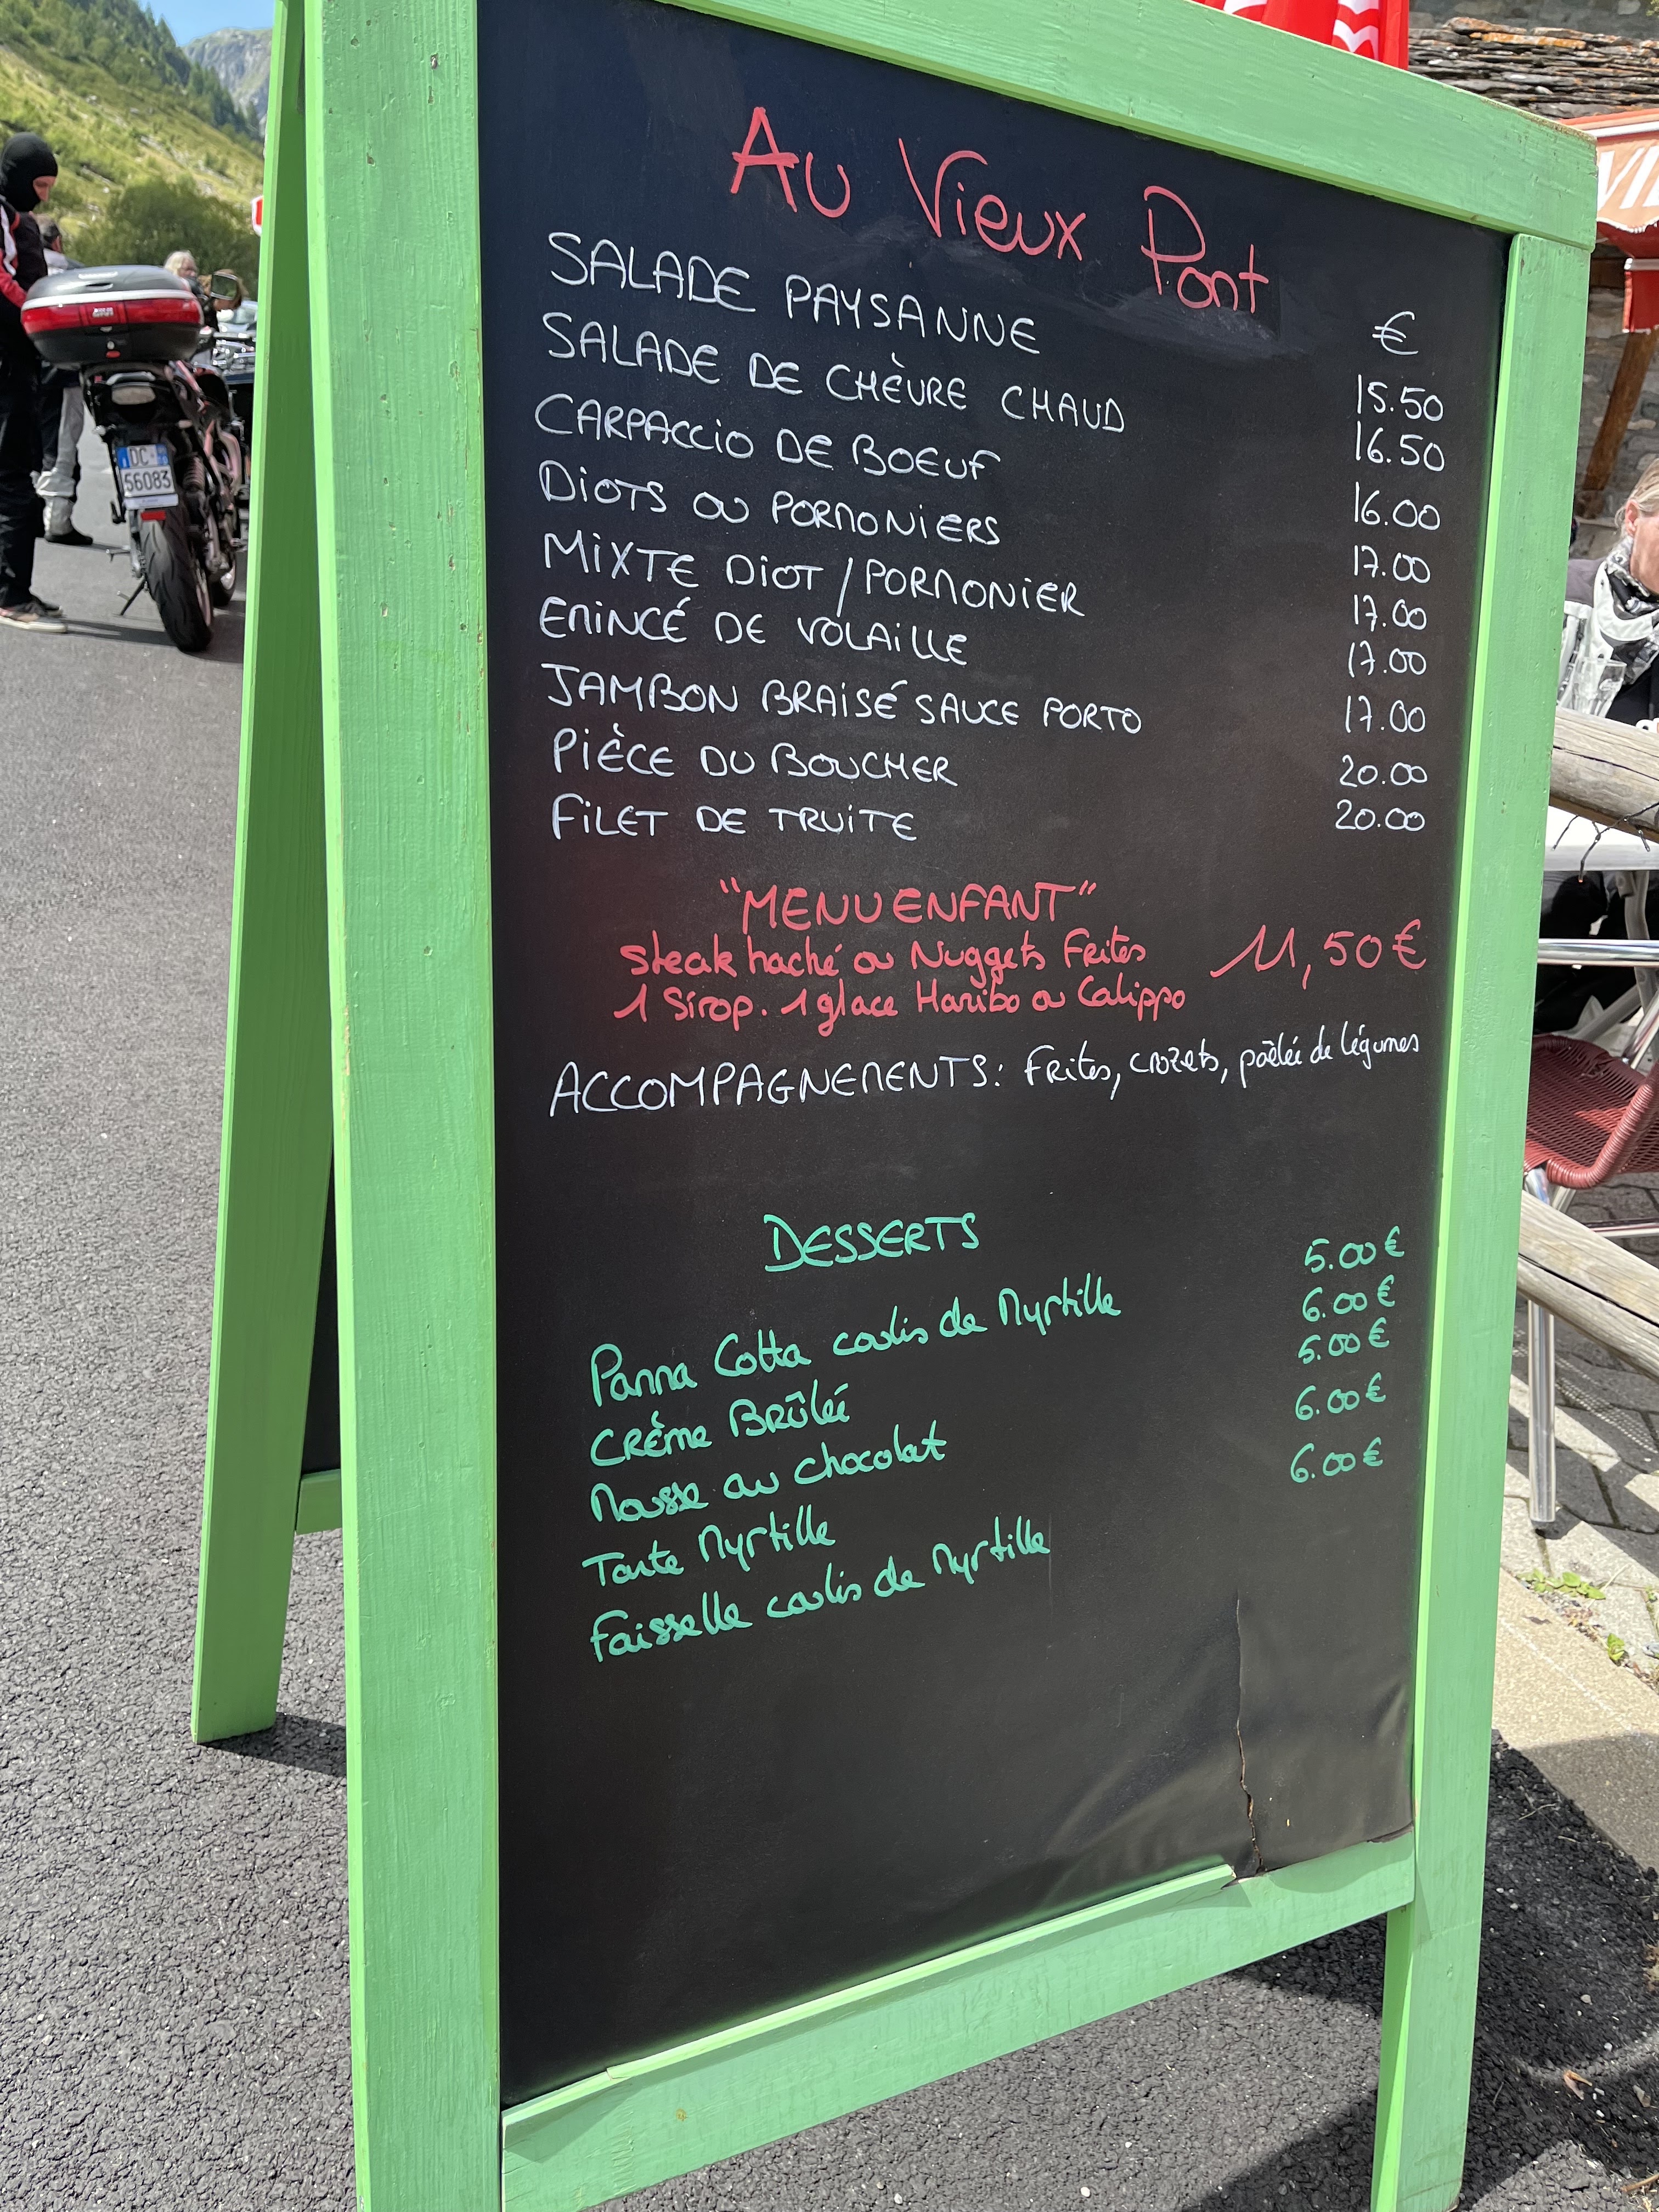 Au Vieux Pont
€
SALADE PAYSANNE 15.50
SALADE DE CHÈVRE CHAUD 16.50
CARPACCIO DE BOEUF 16.00
DIOTS OU PORMONIERS 17.00
MIXTE DIOT / PORMONIER 17.00
EMINCÉ DE VOLAILLE 17.00
JAMBON BRAISÉ SAUCE PORTO 17.00
PIÈCE DU BOUCHER 20.00
FILET DE TRUITE 20.00
"MENU ENFANT"
steak haché ou Nuggets Frites 11,50 €
1 Sirop. 1 glace Haribo ou Calippo
ACCOMPAGNEMENTS: Frites, crozets, poêlée de légumes
DESSERTS
Panna Cotta coulis de Myrtille 5.00 €
CRème BRûlée 6.00 €
Mousse au chocolat 5.00 €
Tarte Myrtille 6.00 €
Faisselle coulis de Myrtille 6.00 €
DC
56083